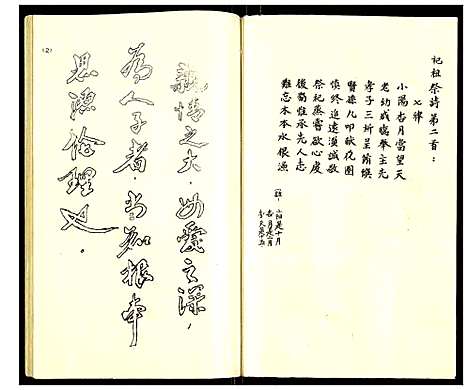 祀祖祭詩第二首：
七律
小陽杏月當望天
老幼咸臨舉主元
孝子三祈呈
賢孫九叩獻花圈
慎終追遠漢誠敬
祭祀蒸嘗欲心處
後裔惟承先人志
難忘木本水根源
親情之大．如愛之深．
為人子者．當知根本
思源倫理足．
(2)